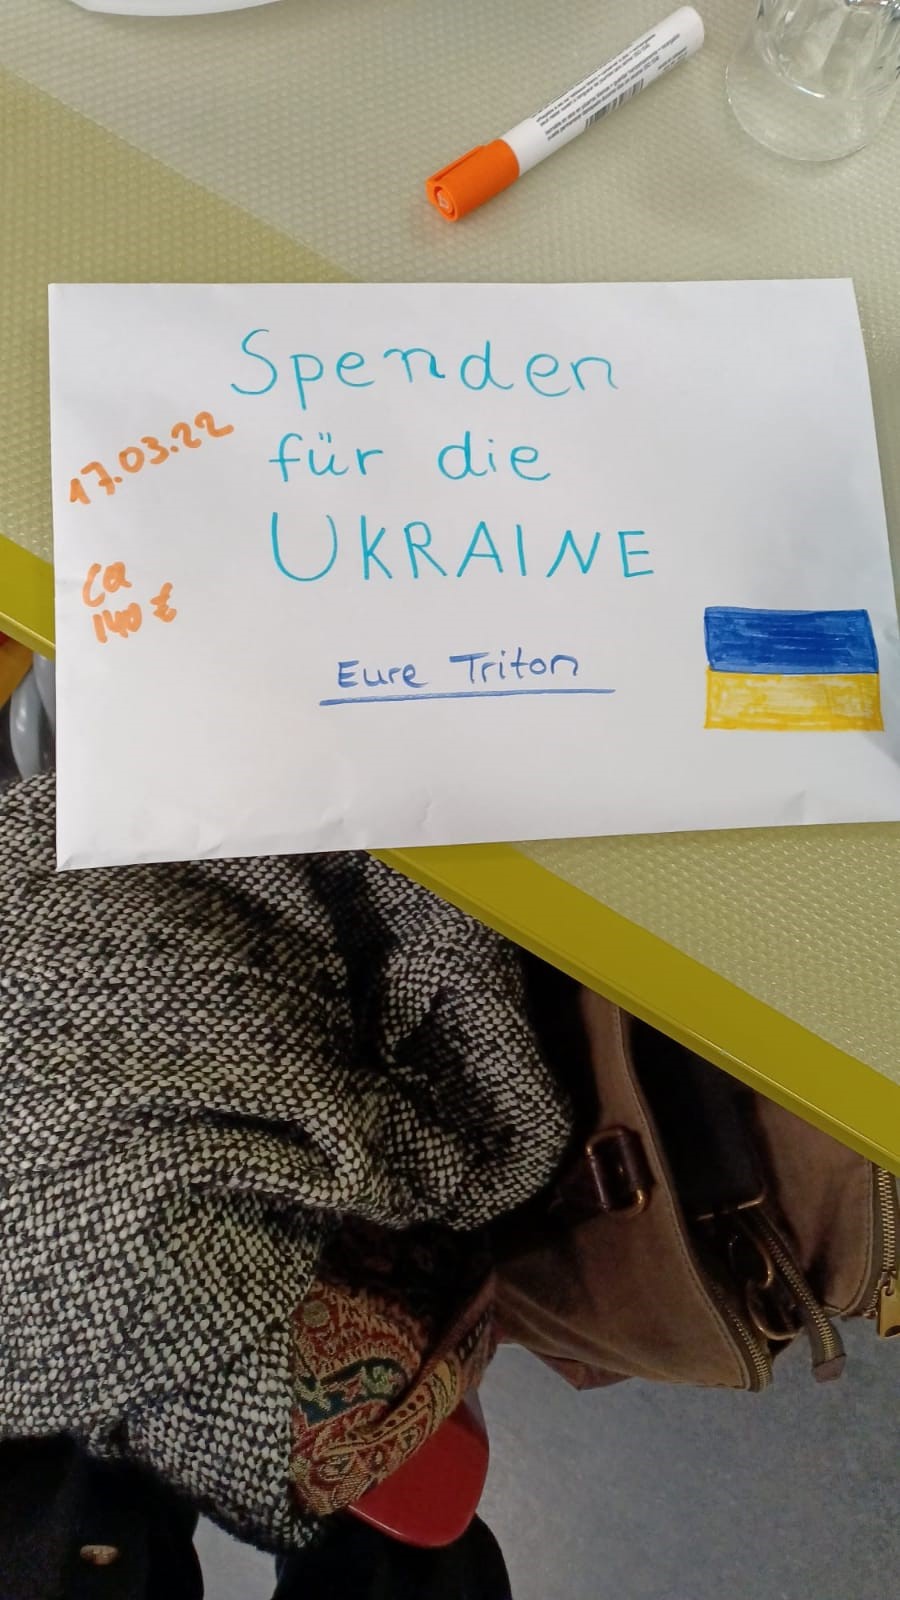 Spenden
für die
UKRAINE
17.03.22
ca
140 €
Eure Triton